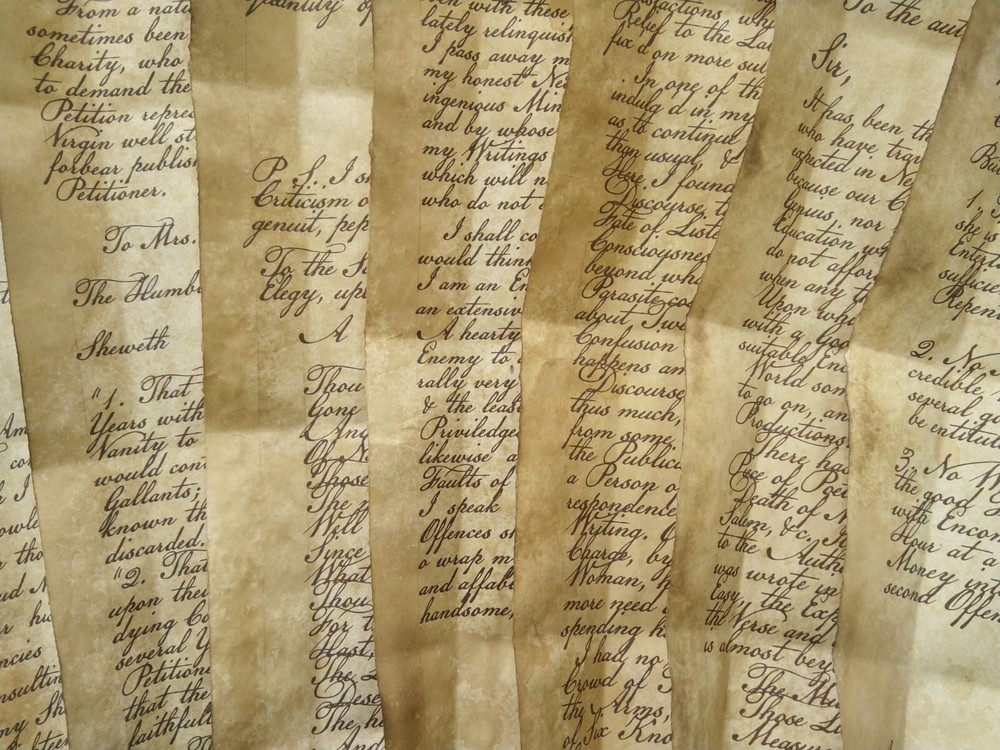 From a natu
sometimes been
Charity, who
to demand the
Petition repres
Virgin well st
forbear publis
Petitioner.
To Mrs.
The Humbl
Sheweth
"1. That
Years with
Vanity to
would con
Gallants;
known th
discarded.
"2. That
upon their
dying Co
several Y
Petitione
that the
faithfull
quantity of
P. S. I s
Criticism o
genuit, pep
To the S
Elegy, up
A
Thou
Gone
& Ang
Of N
Those
The
Well
Since
What
Thou
For t
Last
The L
Dese
The h
And
with these
lately relinquis
I pass away m
my honest Ne
ingenious Min
and by whose
my Writings
which will n
who do not
I shall co
would think
I am an En
an extensiv
A hearty
Enemy to
rally very
& the leas
Priviledge
likewise a
Faults of
I speak
Offences s
o wrap m
and affabl
handsome,
Relief to the La
fix'd on more sui
In one of th
indulg'd in my
as to continue
than usual, &
Here I found
Discourse, t
State of Liste
Consciousnes
beyond wha
Parasite co
about Two
Confusion
happens am
Discourse
thus much,
from some
the Publica
a Person o
respondence
Writing.
Charge, by
Woman, h
more need
spending h
I had no
Crowd of
the Arms,
of Six Kno
To the aut
Sir,
It has been th
who have trav
expected in Ne
because our C
Genius, nor
Education wh
do not affor
when any t
Upon whi
with a goo
suitable Enc
World som
to go on, an
Productions
There has
Piece of Poet
Death of M
Salem, &c.
to the Auth
was wrote in
Easy, the Exp
the Verse and
is almost bey
The Mu
Those L
Measur
Bu
1.
she is
Entert
sufficie
Repen
2. No
credible
several g
be entitul
3. No W
the good
with Encon
Hour at a
Money int
second Offen